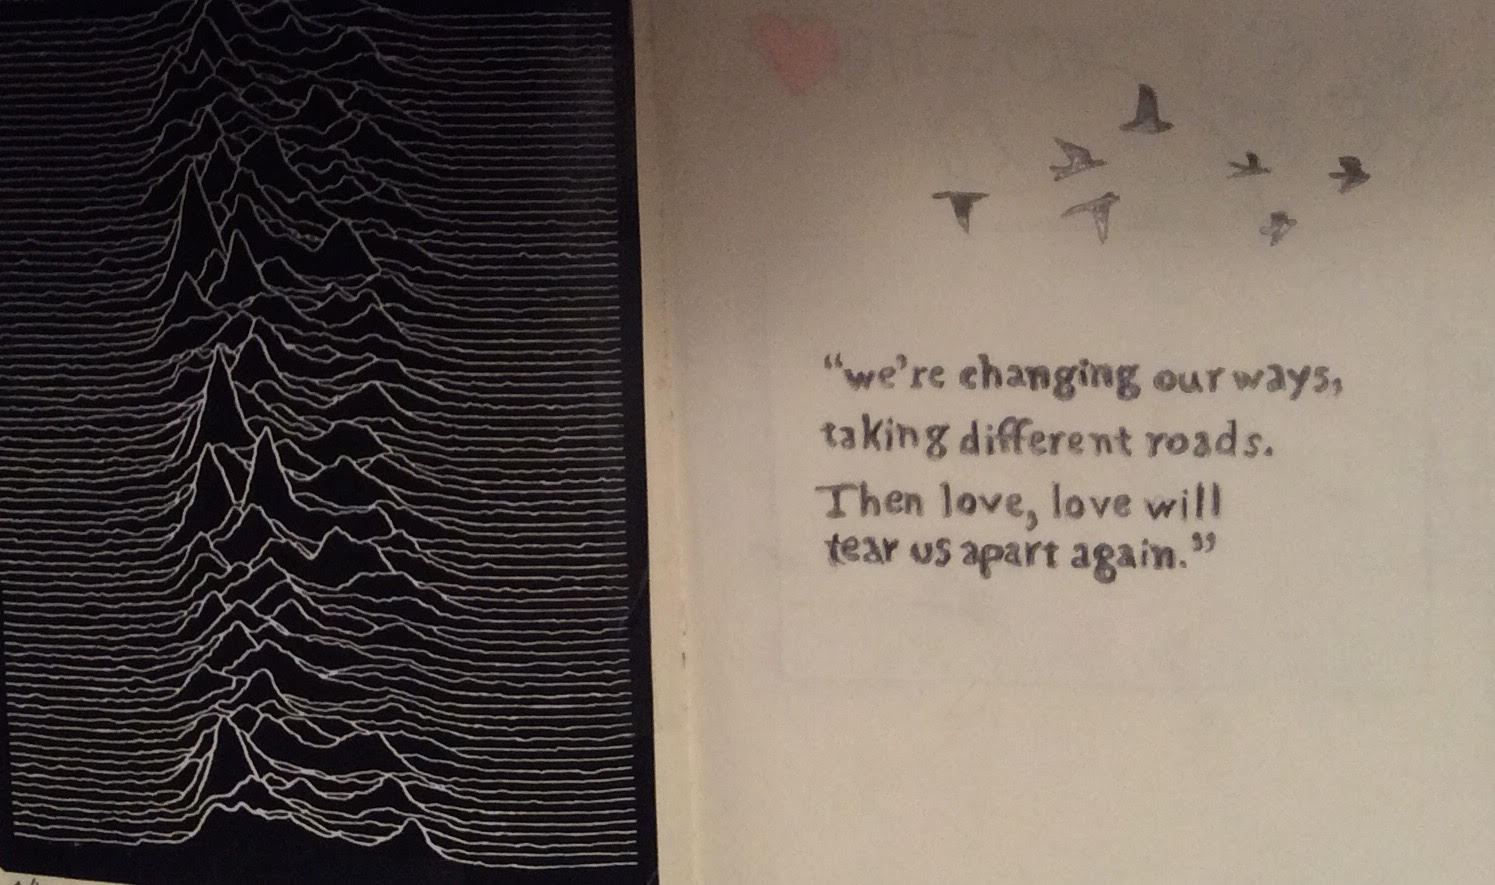 “we're changing our ways,
taking different roads.
Then love, love will
tear us apart again.”